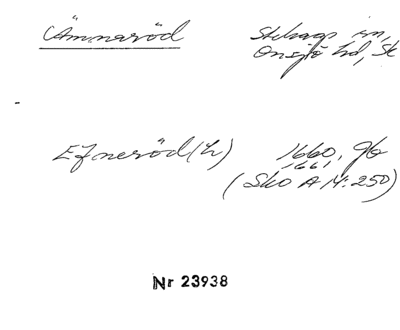 Ämmaröd Stehags sn,
Onsjö hd, Sk
Efneröd(h) 1660, Jb
1661
(Sko A 14:250)
Nr 23938